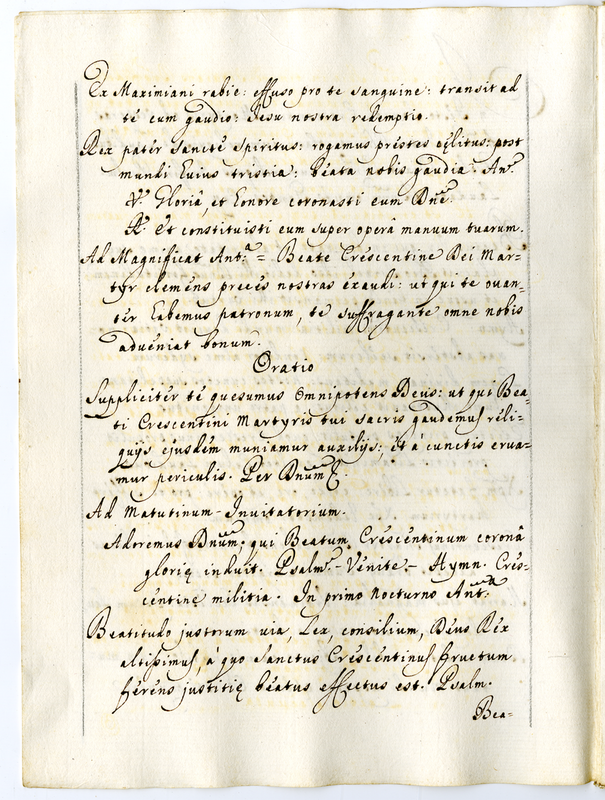 Ex Maximiani rabie: effuso pro te sanguine: transit ad
té cum gaudio: Jesu nostra redemptio.
Rex patér sancté spiritus: rogamus préstes cęlitus: post
mundi huius tristia: béata nobis gaudia. Ant.
V. Gloriâ, et honore coronasti eum Dnē.
R. Et constituisti eum super operâ manuum tuarum.
Ad Magnificat Ant.ª = Beate Créscentine Dei Mar=
tyr clemens precés nostras éxaudi: ut qui te ouan=
tér habemus patronum, te suffragante omne nobis
aduéniat bonum.
Oratio
Supplicitér té quesumus Omnipoténs Deus: ut qui Bea=
ti Crescentini Martyris tui sacris gaudemus réli=
quijs éjusdém muniamur auxilijs: Et à cunctis erua=
mur periculis. Per Dnum &.
Ad Matutinum - Inuitatorium.
Adoremus Dnum; qui Beatum Créscentinum coronâ
glorię induit. Psalm.s - Vénite - Hymn. Crés=
céntinę militia. In primo Nocturno Ant.ª
Béatitudo justorum uia, Lex, consilium, Déus Réx
altissimus, à quo Sanctus Crescéntinus fructum
féréns justitię béatus effectus est. Psalm.
Bea=